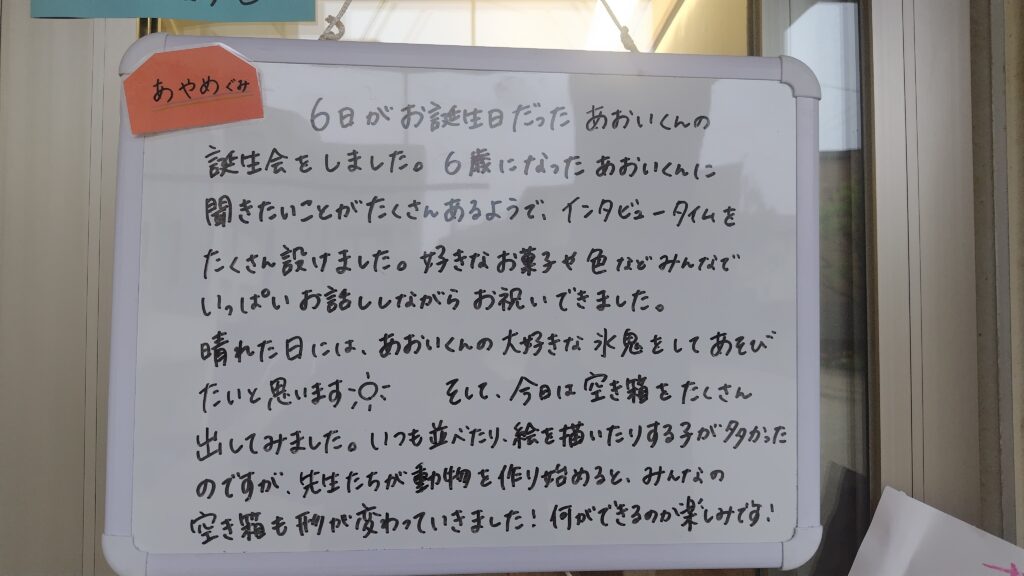 あやめぐみ
6日がお誕生日だった あおいくんの
誕生会をしました。6歳になった あおいくんに
聞きたいことがたくさんあるようで、インタビュータイムを
たくさん設けました。好きなお菓子や色などみんなで
いっぱいお話ししながらお祝いできました。
晴れた日には、あおいくんの大好きな氷鬼をしてあそび
たいと思います☼ そして、今日は空き箱をたくさん
出してみました。いつも並べたり、絵を描いたりする子が多かった
のですが、先生たちが動物を作り始めると、みんなの
空き箱も形が変わっていきました！何ができるのか楽しみです！